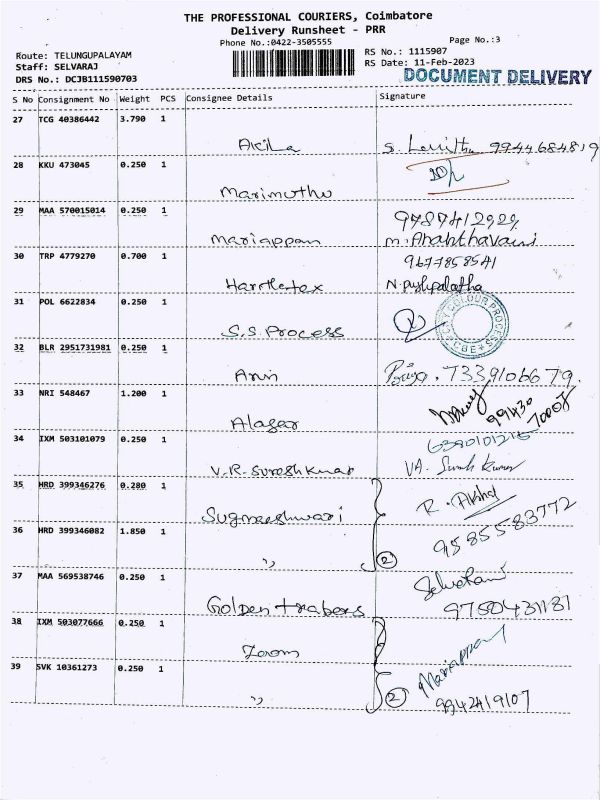 THE PROFESSIONAL COURIERS, Coimbatore
Delivery Runsheet - PRR
Phone No.:0422-3505555
Page No.:3
Route: TELUNGUPALAYAM
Staff: SELVARAJ
DRS No.: DCJB111590703
RS No.: 1115907
RS Date: 11-Feb-2023
DOCUMENT DELIVERY
S No Consignment No Weight PCS Consignee Details Signature
27 TCG 40386442 3.790 1
Akila 9944684819
28 KKU 473045 0.250 1
Marimuthu
29 MAA 570015014 0.250 1
9787412929
Mariappan
30 TRP 4779270 0.700 1
9677858541
N. Pushpalatha
31 POL 6622834 0.250 1
S.S. Process
32 BLR 2951731981 0.250 1
Priya. 7339106679.
33 NRI 548467 1.200 1
Alagar
34 IXM 503101079 0.250 1
V.R. Sureshkumar
35 HRD 399346276 0.280 1
36 HRD 399346082 1.850 1
" 2 9585583772
37 MAA 569538746 0.250 1
Golden traders
38 IXM 503077666 0.250 1
Zoom Mariappan
39 SVK 10361273 0.250 1
" 2 9942419107